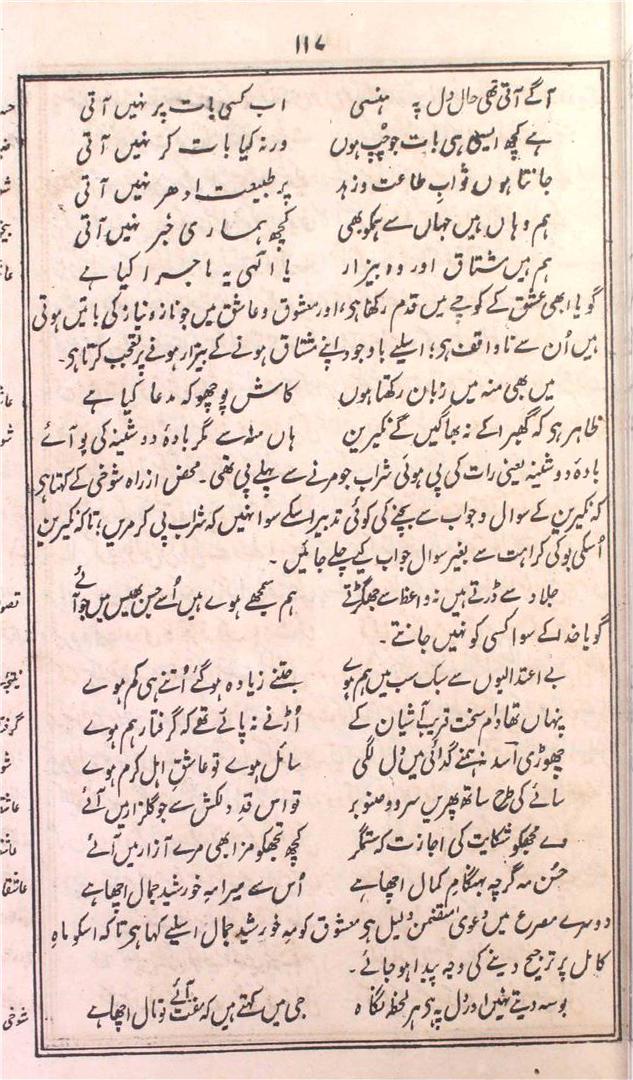 ۱۱۷
آگے آتی تھی حال دل پہ ہنسی اب کسی بات پر نہیں آتی
ہے کچھ ایسی ہی بات جو چپ ہوں ورنہ کیا بات کر نہیں آتی
جانتا ہوں ثوابِ طاعت و زہد پر طبیعت ادھر نہیں آتی
ہم وہاں ہیں جہاں سے ہمکو بھی کچھ ہماری خبر نہیں آتی
ہم ہیں مشتاق اور وہ بیزار یا الٰہی یہ ماجرا کیا ہے
گویا ابھی عشق کے کوچے میں قدم رکھا ہی، اور معشوق و عاشق میں جو ناز و نیاز کی باتیں ہوتی
ہیں اُن سے ناواقف ہی؛ اسلیے باوجود اپنے مشتاق ہونے کے بیزار ہونے پر تعجب کرتا ہی۔
میں بھی منہ میں زبان رکھتا ہوں کاش پوچھو کہ مدعا کیا ہے
ظاہر ہو کہ گھبرا کے نہ بھاگیں گے نکیرین ہاں منہ سے مگر بادۂ دوشینہ کی بو آئے
بادۂ دوشینہ یعنی رات کی پی ہوئی شراب جو مرنے سے پہلے پی تھی۔ محض از راہ شوخی کے کہتا ہی
کہ نکیرین کے سوال و جواب سے بچنے کی کوئی تدبیر اسکے سوا نہیں کہ شراب پی کر مریں؛ تاکہ نکیرین
اُسکی بو کی کراہت سے بغیر سوال جواب کیے چلے جائیں۔
جلاد سے ڈرتے ہیں نہ واعظ سے جھگڑتے ہم سمجھے ہوے ہیں اُسے جس بھیس میں جو آئے
گویا خدا کے سوا کسی کو نہیں جانتے۔
بے اعتدالیوں سے سبک سب میں ہم ہوے جتنے زیادہ ہو گئے اُتنے ہی کم ہوے
پنہاں تھا دام سخت قریب آشیان کے اُڑنے نہ پائے تھے کہ گرفتار ہم ہوے
چھوڑی اسد نہ ہمنے گدائی میں دل لگی سائل ہوے تو عاشقِ اہل کرم ہوے
سائے کی طرح ساتھ پھریں سرو و صنوبر تو اس قدِ دلکش سے جو گلزار میں آئے
دے مجھکو شکایت کی اجازت کہ ستمگر کچھ تجھکو مزا بھی مرے آزار میں آئے
حسنِ مہ گرچہ بہنگامِ کمال اچھا ہے اُس سے میرا مہ خورشید جمال اچھا ہے
دوسرے مصرع میں دعویٰ متضمن دلیل ہی معشوق کو مہِ خورشید جمال اسلیے کہا ہی تاکہ اسکو ماہِ
کامل پر ترجیح دینے کی وجہ پیدا ہو جائے۔
بوسہ دیتے نہیں اور دل پہ ہی ہر لحظہ نگاہ جی میں کہتے ہیں کہ مفت آئے تو مال اچھا ہے